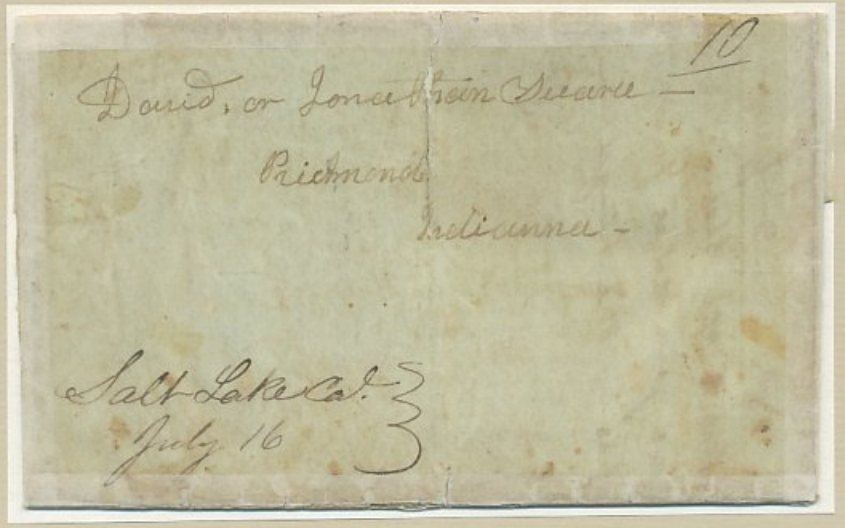 10
David, or Jonathan
Richmond
Indianna
Salt Lake Cal.
July 16